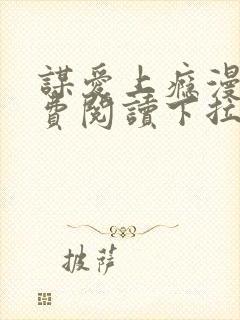 謀愛上癮漫
費閱讀下拉
披薩